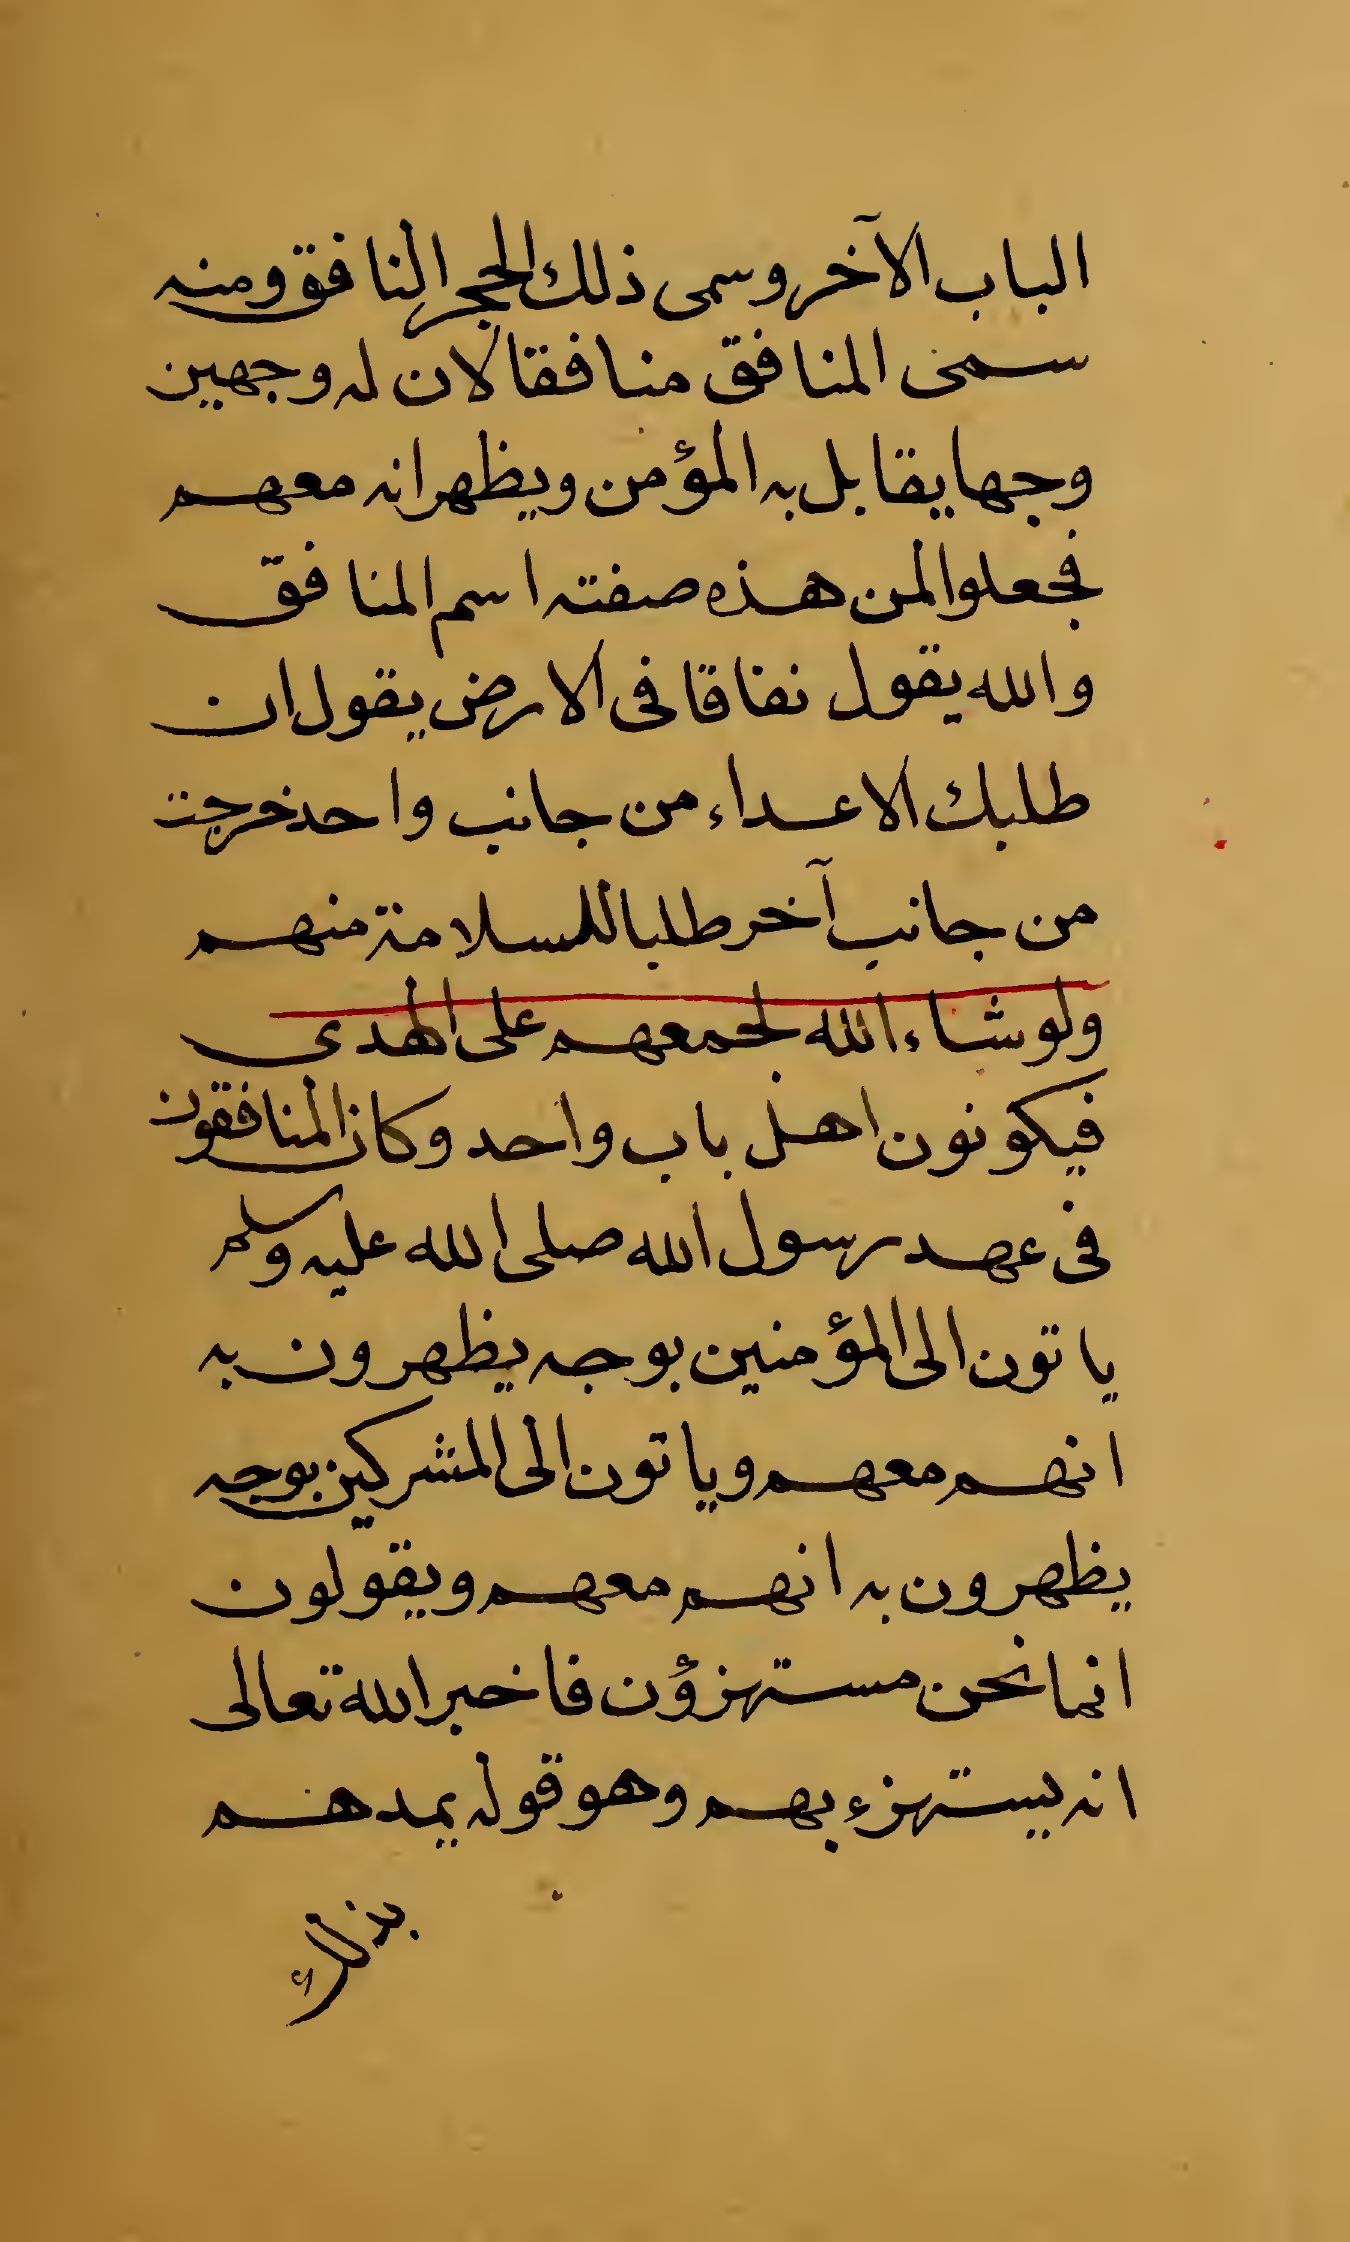 الباب الآخر وسمى ذلك الحجر النافق ومنه
سمى المنافق منافقا لان له وجهين
وجها يقابل به المؤمن ويظهر انه معهم
فجعلوا لمن هذه صفته اسم المنافق
والله يقول نفاقا فى الارض يقول ان
طلبك الاعداء من جانب واحد خرجت
من جانب آخر طلبا للسلامة منهم
ولو شاء الله لجمعهم على الهدى
فيكونون اهل باب واحد وكان المنافقون
فى عهد رسول الله صلى الله عليه وسلم
ياتون الى المؤمنين بوجه يظهرون به
انهم معهم وياتون الى المشركين بوجه
يظهرون به انهم معهم ويقولون
انما نحن مستهزؤن فاخبر الله تعالى
انه يستهزء بهم وهو قوله يمدهم
بذلك